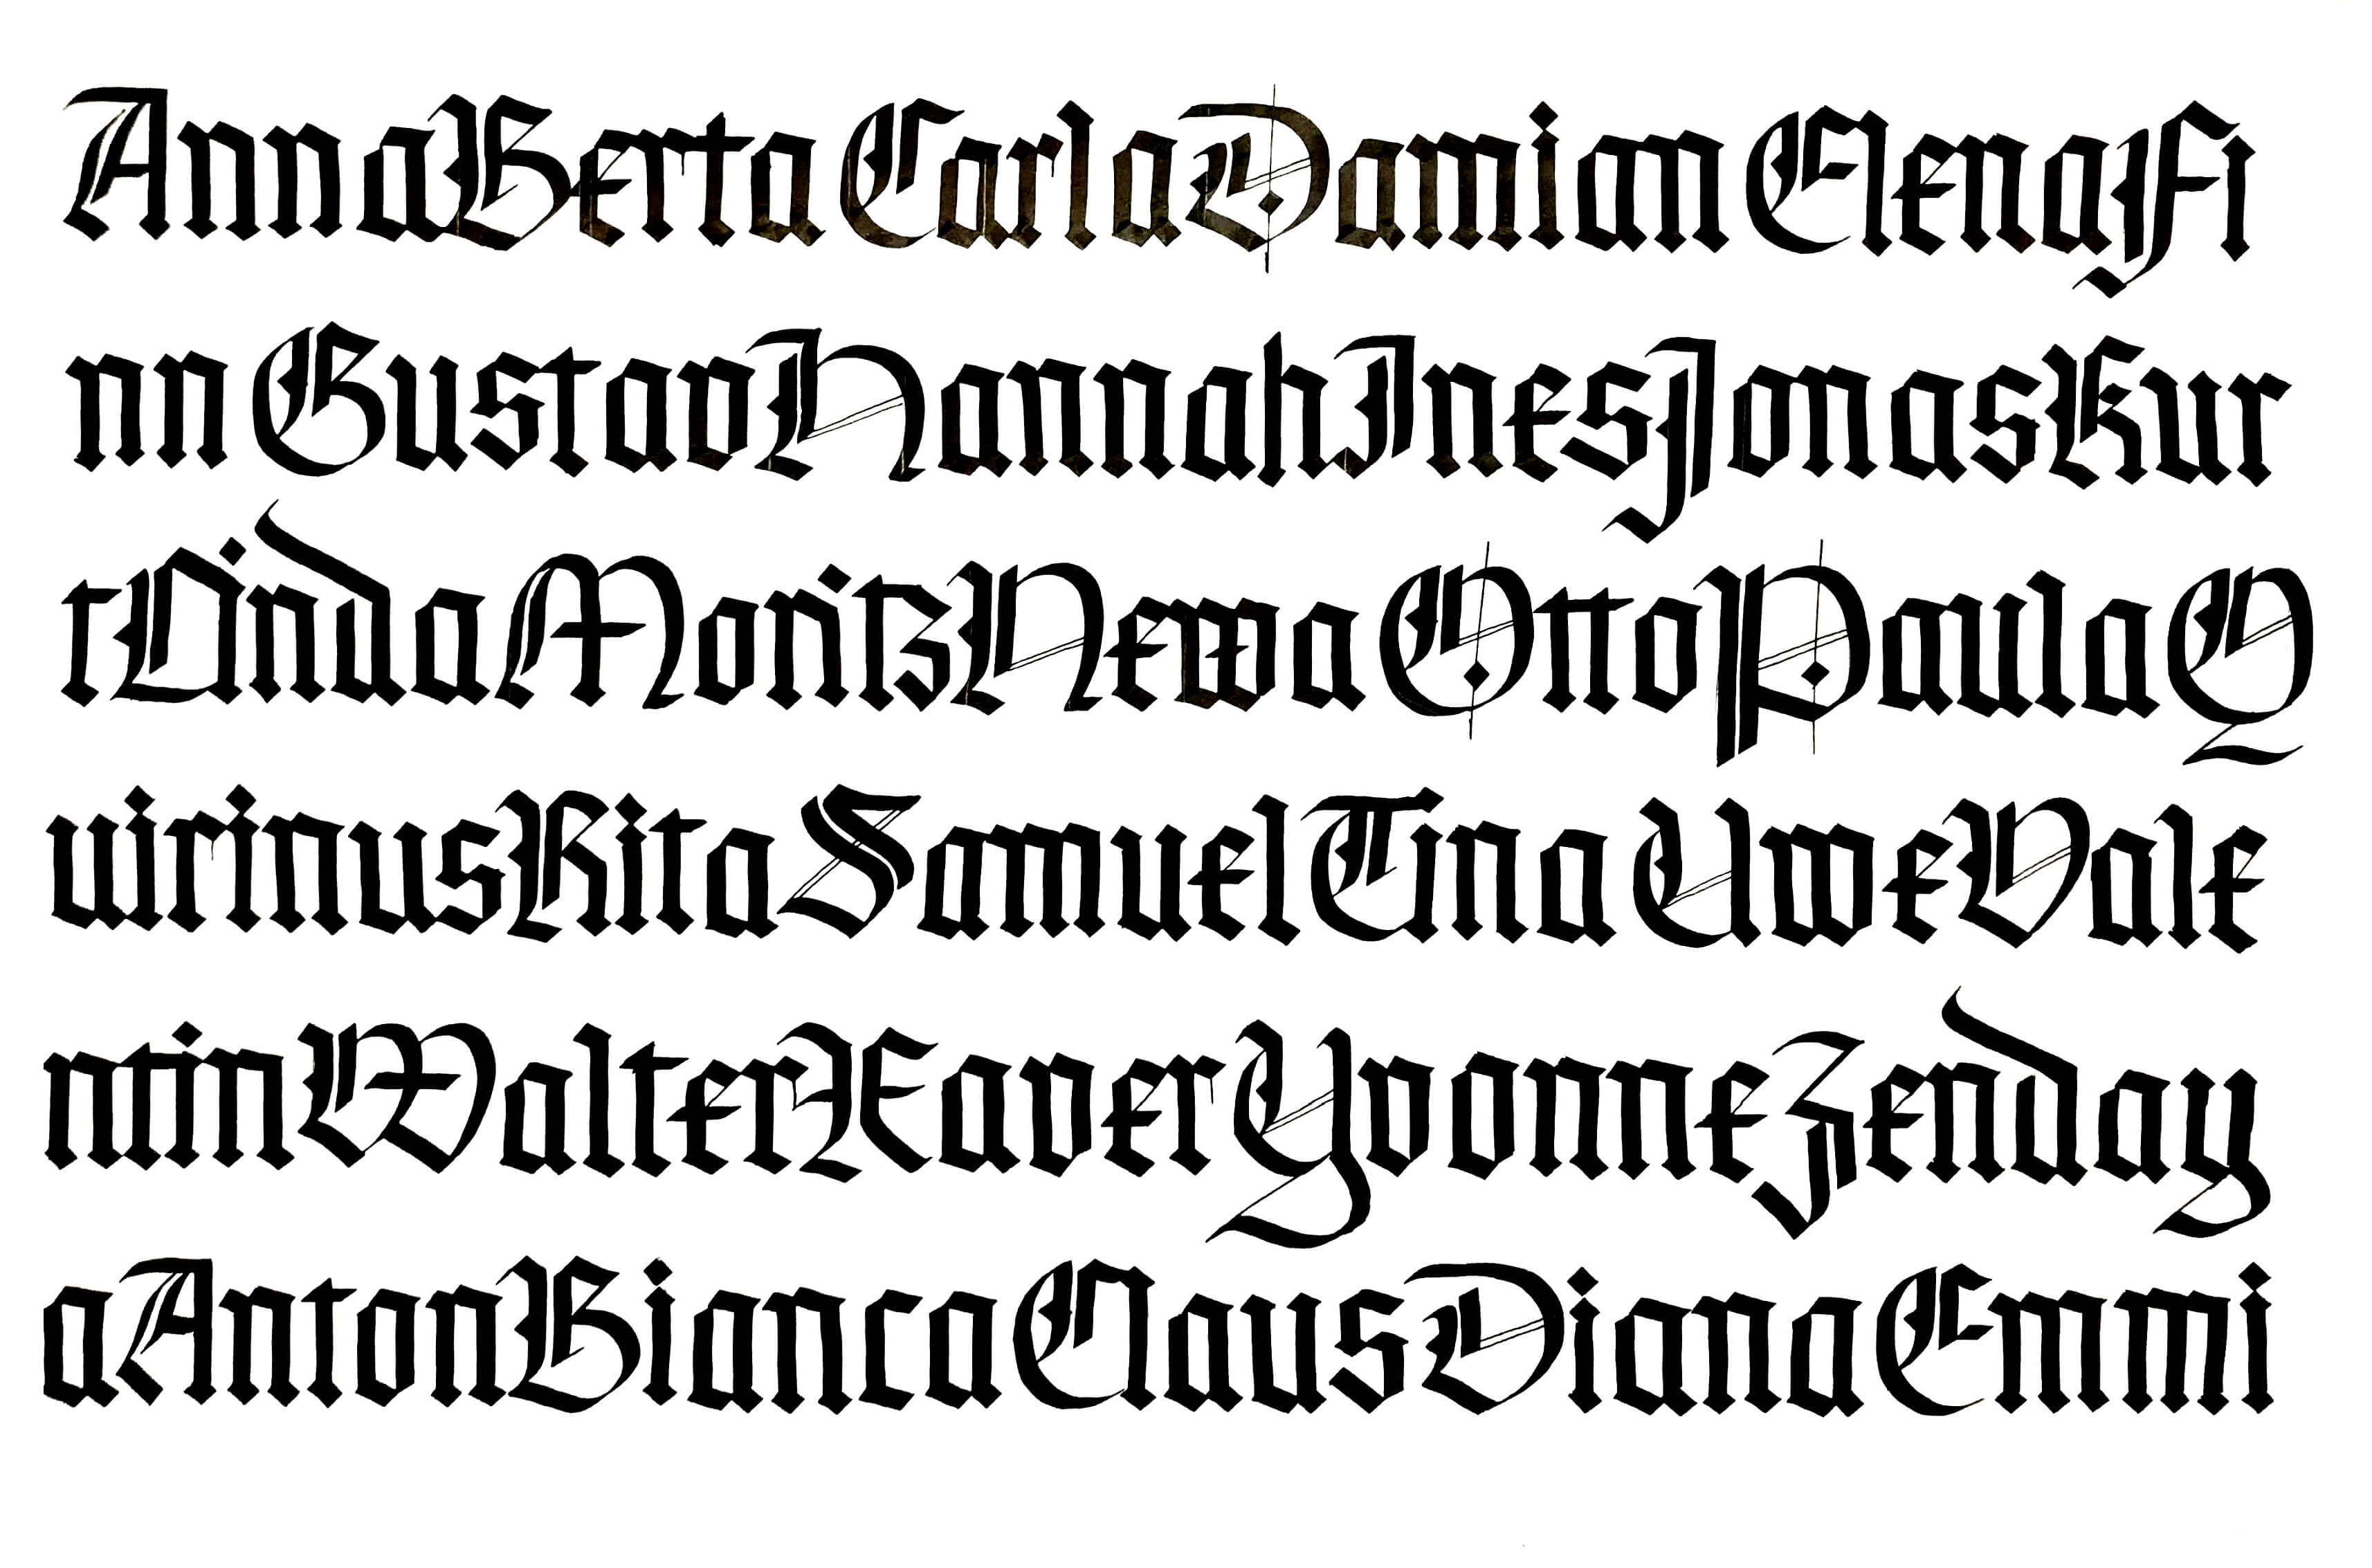 AnnaBertaCarlaDamianElenaFi
nnGustavHannahInesJonasKur
tLindaMoritzNewaOttoPaulaQ
uirinusRitaSamuelTinaUweVale
ntinWalterXaverYvonneZenday
aAntonBiancaClausDianaEmmi